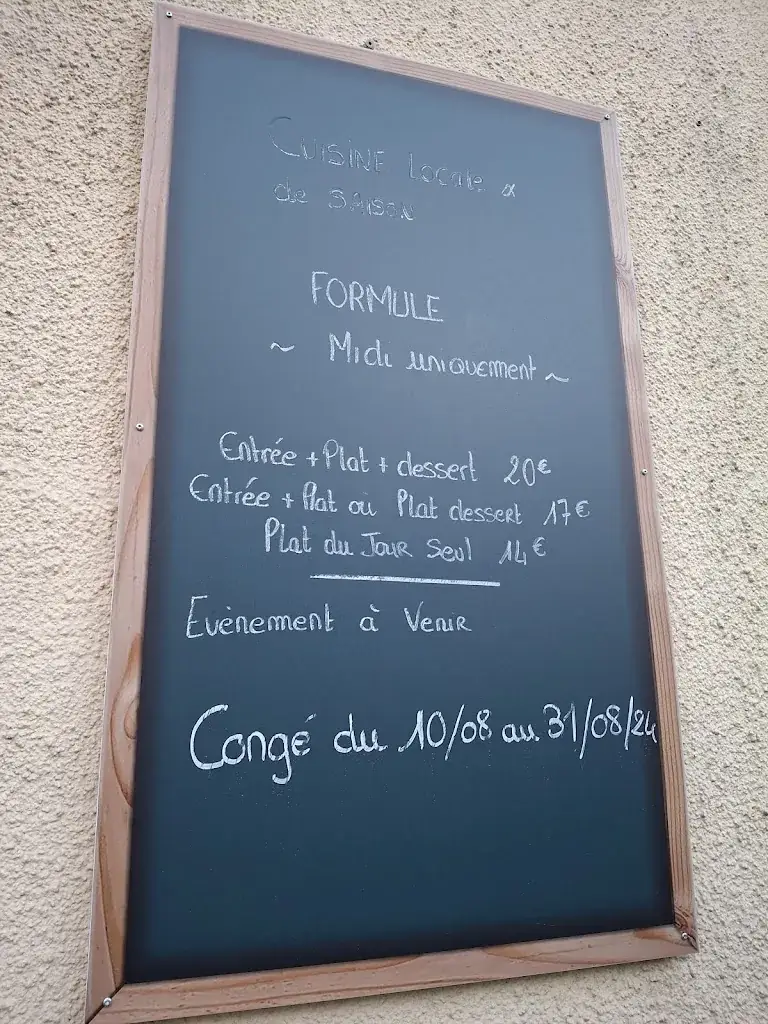 CUISINE Locale &
de SAISON
FORMULE
~ Midi uniquement ~
Entrée + Plat + dessert 20€
Entrée + Plat ou Plat dessert 17€
Plat du Jour Seul 14€
Evènement à Venir
Congé du 10/08 au 31/08/24